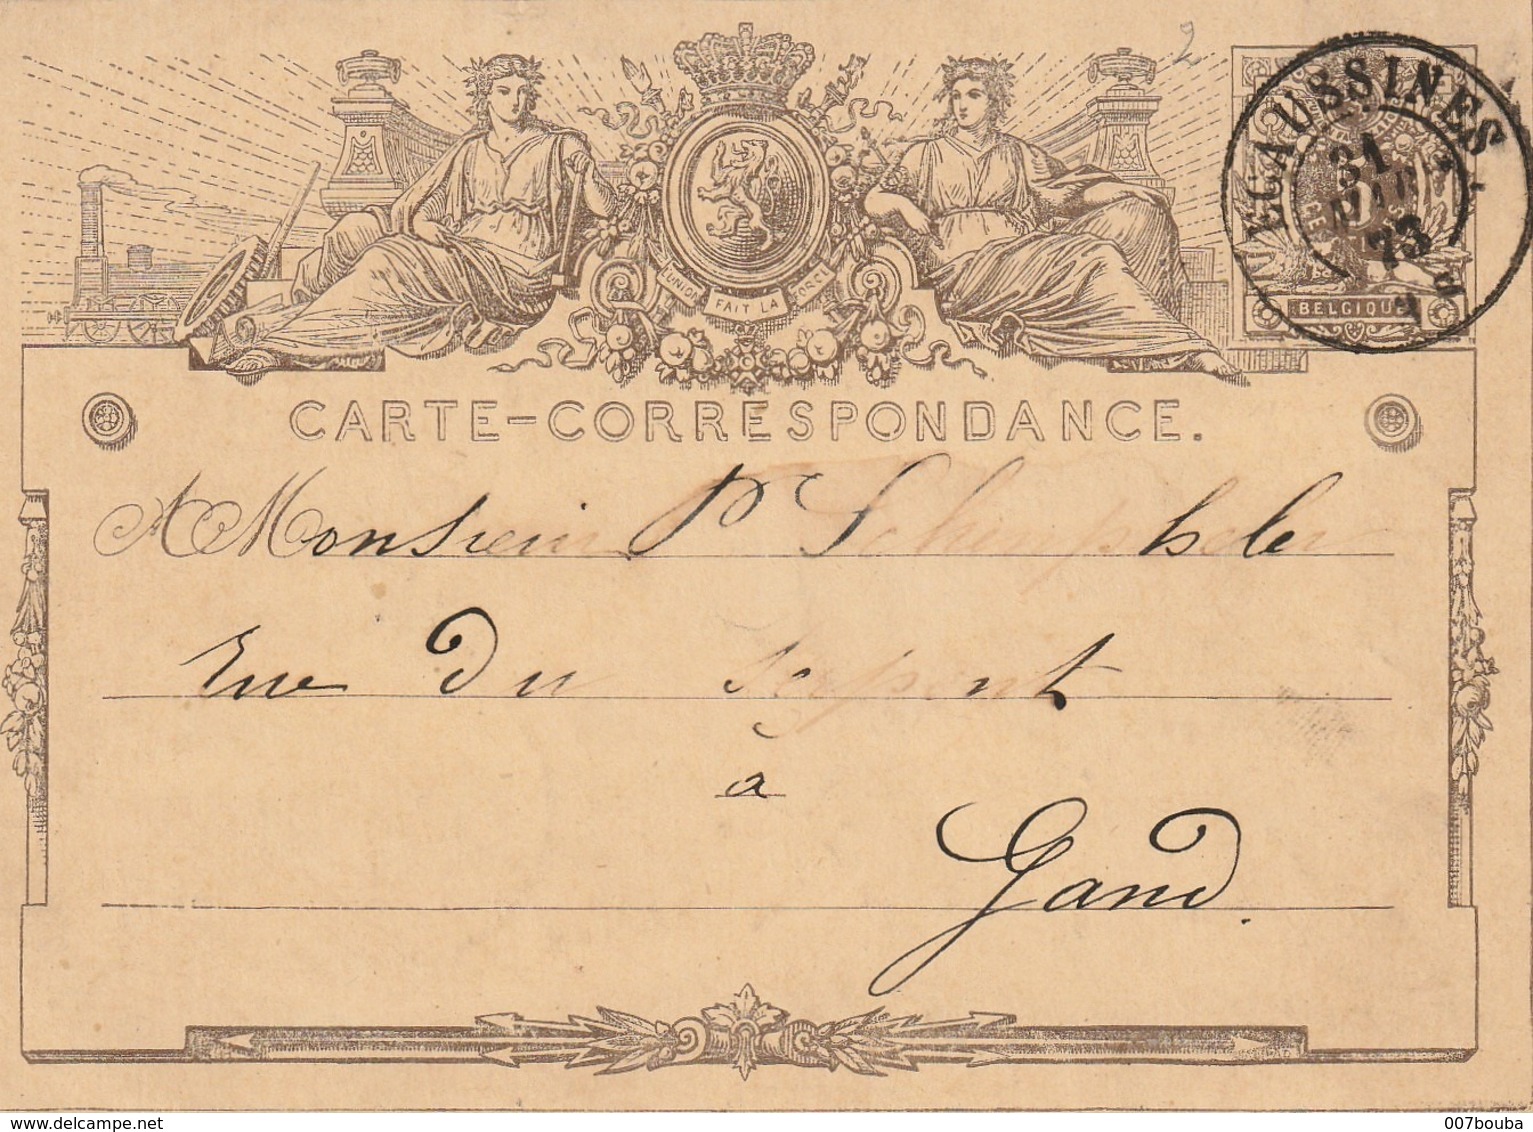 2
ECAUSSINES
31
MARS
73
BELGIQUE
L'UNION FAIT LA FORCE
CARTE-CORRESPONDANCE.
A Monsieur
Rue Du Serpent
à
Gand.
Delcampe.net
007bouba